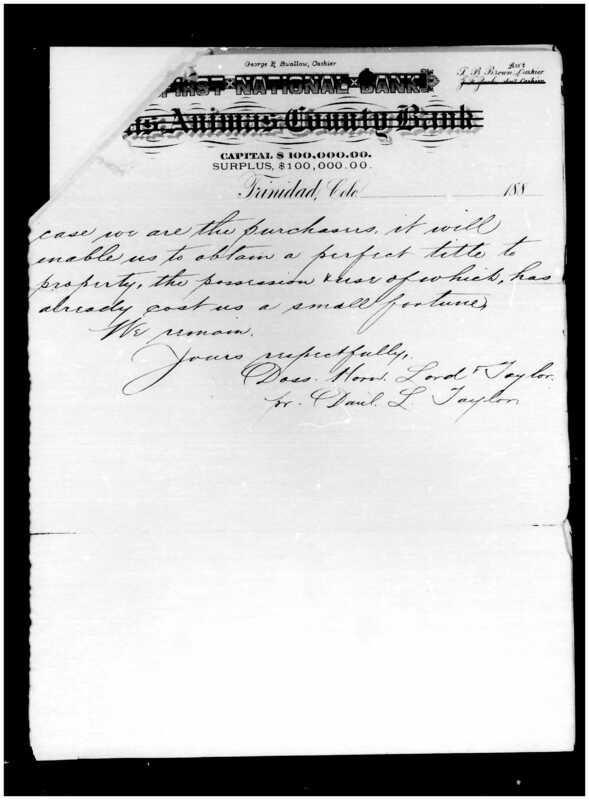 George R. Swallow, Cashier
Ass't
T. B. Brown, Cashier
FIRST NATIONAL BANK
as Animas County Bank
CAPITAL $100,000.00.
SURPLUS, $100,000.00.
Trinidad, Colo. 188
case we are the purchasers, it will
enable us to obtain a perfect title to
property, the possession & use of which, has
already cost us a small fortune,
We remain.
Yours respectfully,
Doss. Horn. Lord & Taylor.
pr. Danl. L Taylor